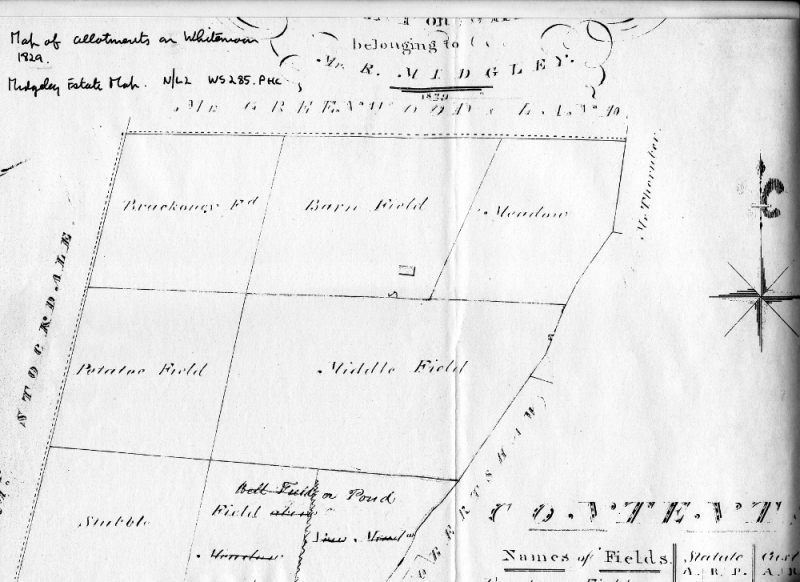 Map of allotments on Whitemoor
1829.
Midgeley Estate Map. N/L2 WS285. PHC
belonging to
Mr. R. MIDGLEY.
1829
Mr GREENWOODs LAND
Mr Thornber
STOCKDALE
Brackoney Fd
Barn Field
Meadow
Potatoe Field
Middle Field
Stubble
Bell Field or Pond
Field above
Meadow
CONTENTS
Names of Fields.
Statute
A. R. P.
Cust
A. R